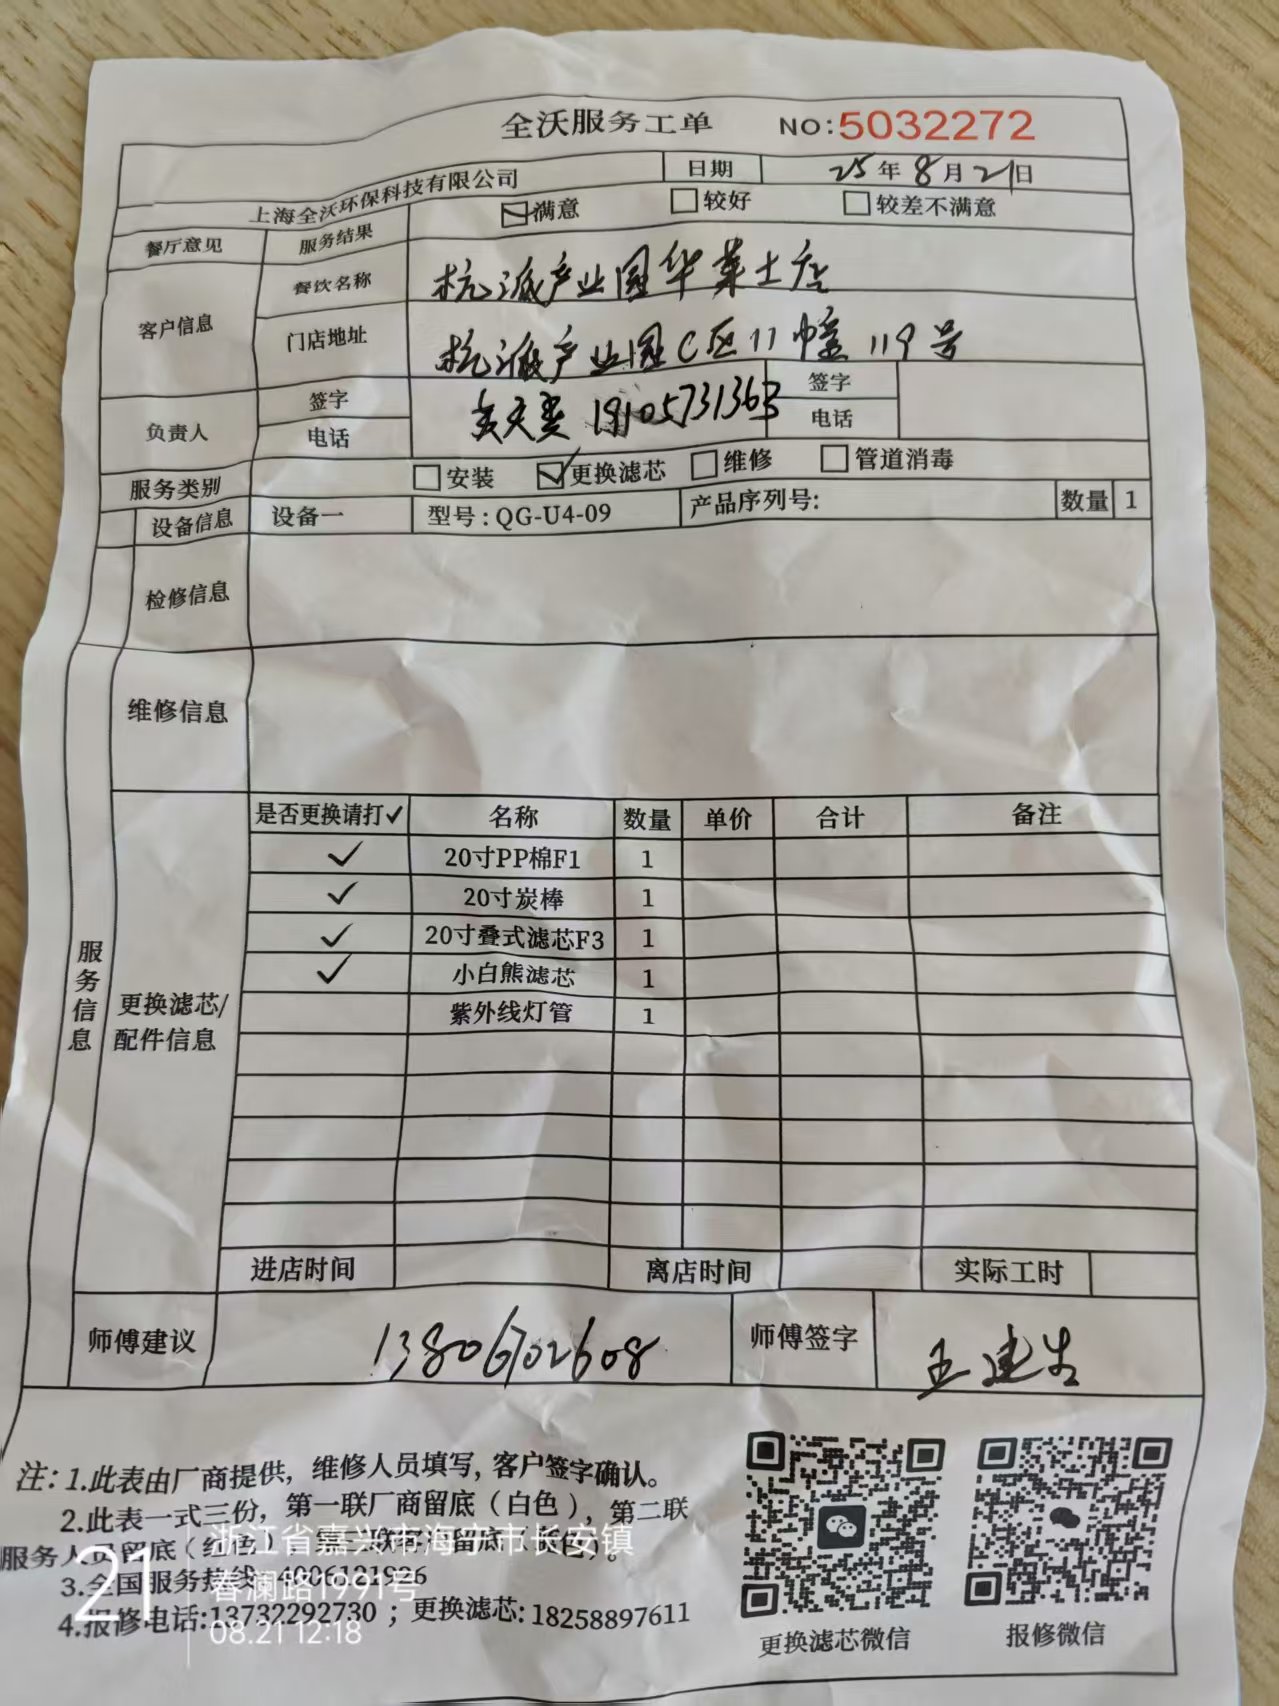 全沃服务工单 NO:5032272
上海全沃环保科技有限公司 日期 25年8月21日
餐厅意见 服务结果 满意 较好 较差不满意
客户信息 餐饮名称 杭派产业园华莱士店
门店地址 杭派产业园C区11幢119号
负责人 签字 签字
电话 19105731363 电话
服务类别 安装 ✓更换滤芯 维修 管道消毒
设备信息 设备一 型号:QG-U4-09 产品序列号: 数量 1
检修信息
维修信息
服务信息
更换滤芯/
配件信息
是否更换请打✓ 名称 数量 单价 合计 备注
✓ 20寸PP棉F1 1
✓ 20寸炭棒 1
✓ 20寸叠式滤芯F3 1
✓ 小白熊滤芯 1
紫外线灯管 1
进店时间 离店时间 实际工时
师傅建议 13806702608 师傅签字 王建生
注:1.此表由厂商提供,维修人员填写,客户签字确认。
2.此表一式三份,第一联厂商留底(白色),第二联
服务人员留底(红色),第三联客户留底(黄色)。
3.全国服务热线:4006121926
4.报修电话:13732292730;更换滤芯:18258897611
更换滤芯微信 报修微信
21
浙江省嘉兴市海宁市长安镇
春澜路1991号
08.21 12:18